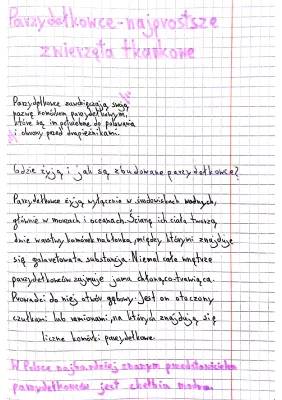 Parzydełkowce - najprostsze
zwierzęta tkankowe
Parzydełkowce zawdzięczają swoją
nazwę komórkom parzydełkowym,
które są im potrzebne do polowania
i obrony przed drapieżnikami.
Gdzie żyją i jak są zbudowane parzydełkowce?
Parzydełkowce żyją wyłącznie w środowiskach wodnych,
głównie w morzach i oceanach. Ścianę ich ciała tworzą
dwie warstwy komórek nabłonka, między którymi znajduje
się galaretowata substancja. Niemal całe wnętrze
parzydełkowców zajmuje jama chłonąco-trawiąca.
Prowadzi do niej otwór gębowy. Jest on otoczony
czułkami lub ramionami, na których znajdują się
liczne komórki parzydełkowe.
W Polsce najbardziej znanym przedstawicielem
parzydełkowców jest chełbia modra.